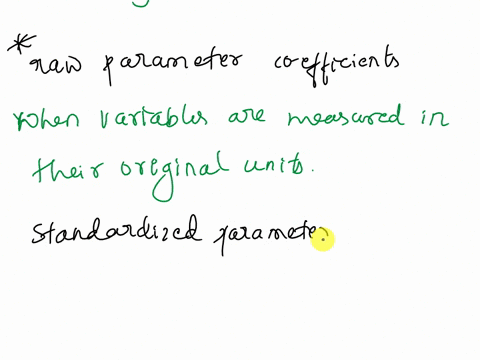 * raw parameter coefficients
when variables are measured in
their oreginal units.
Standardized parameter